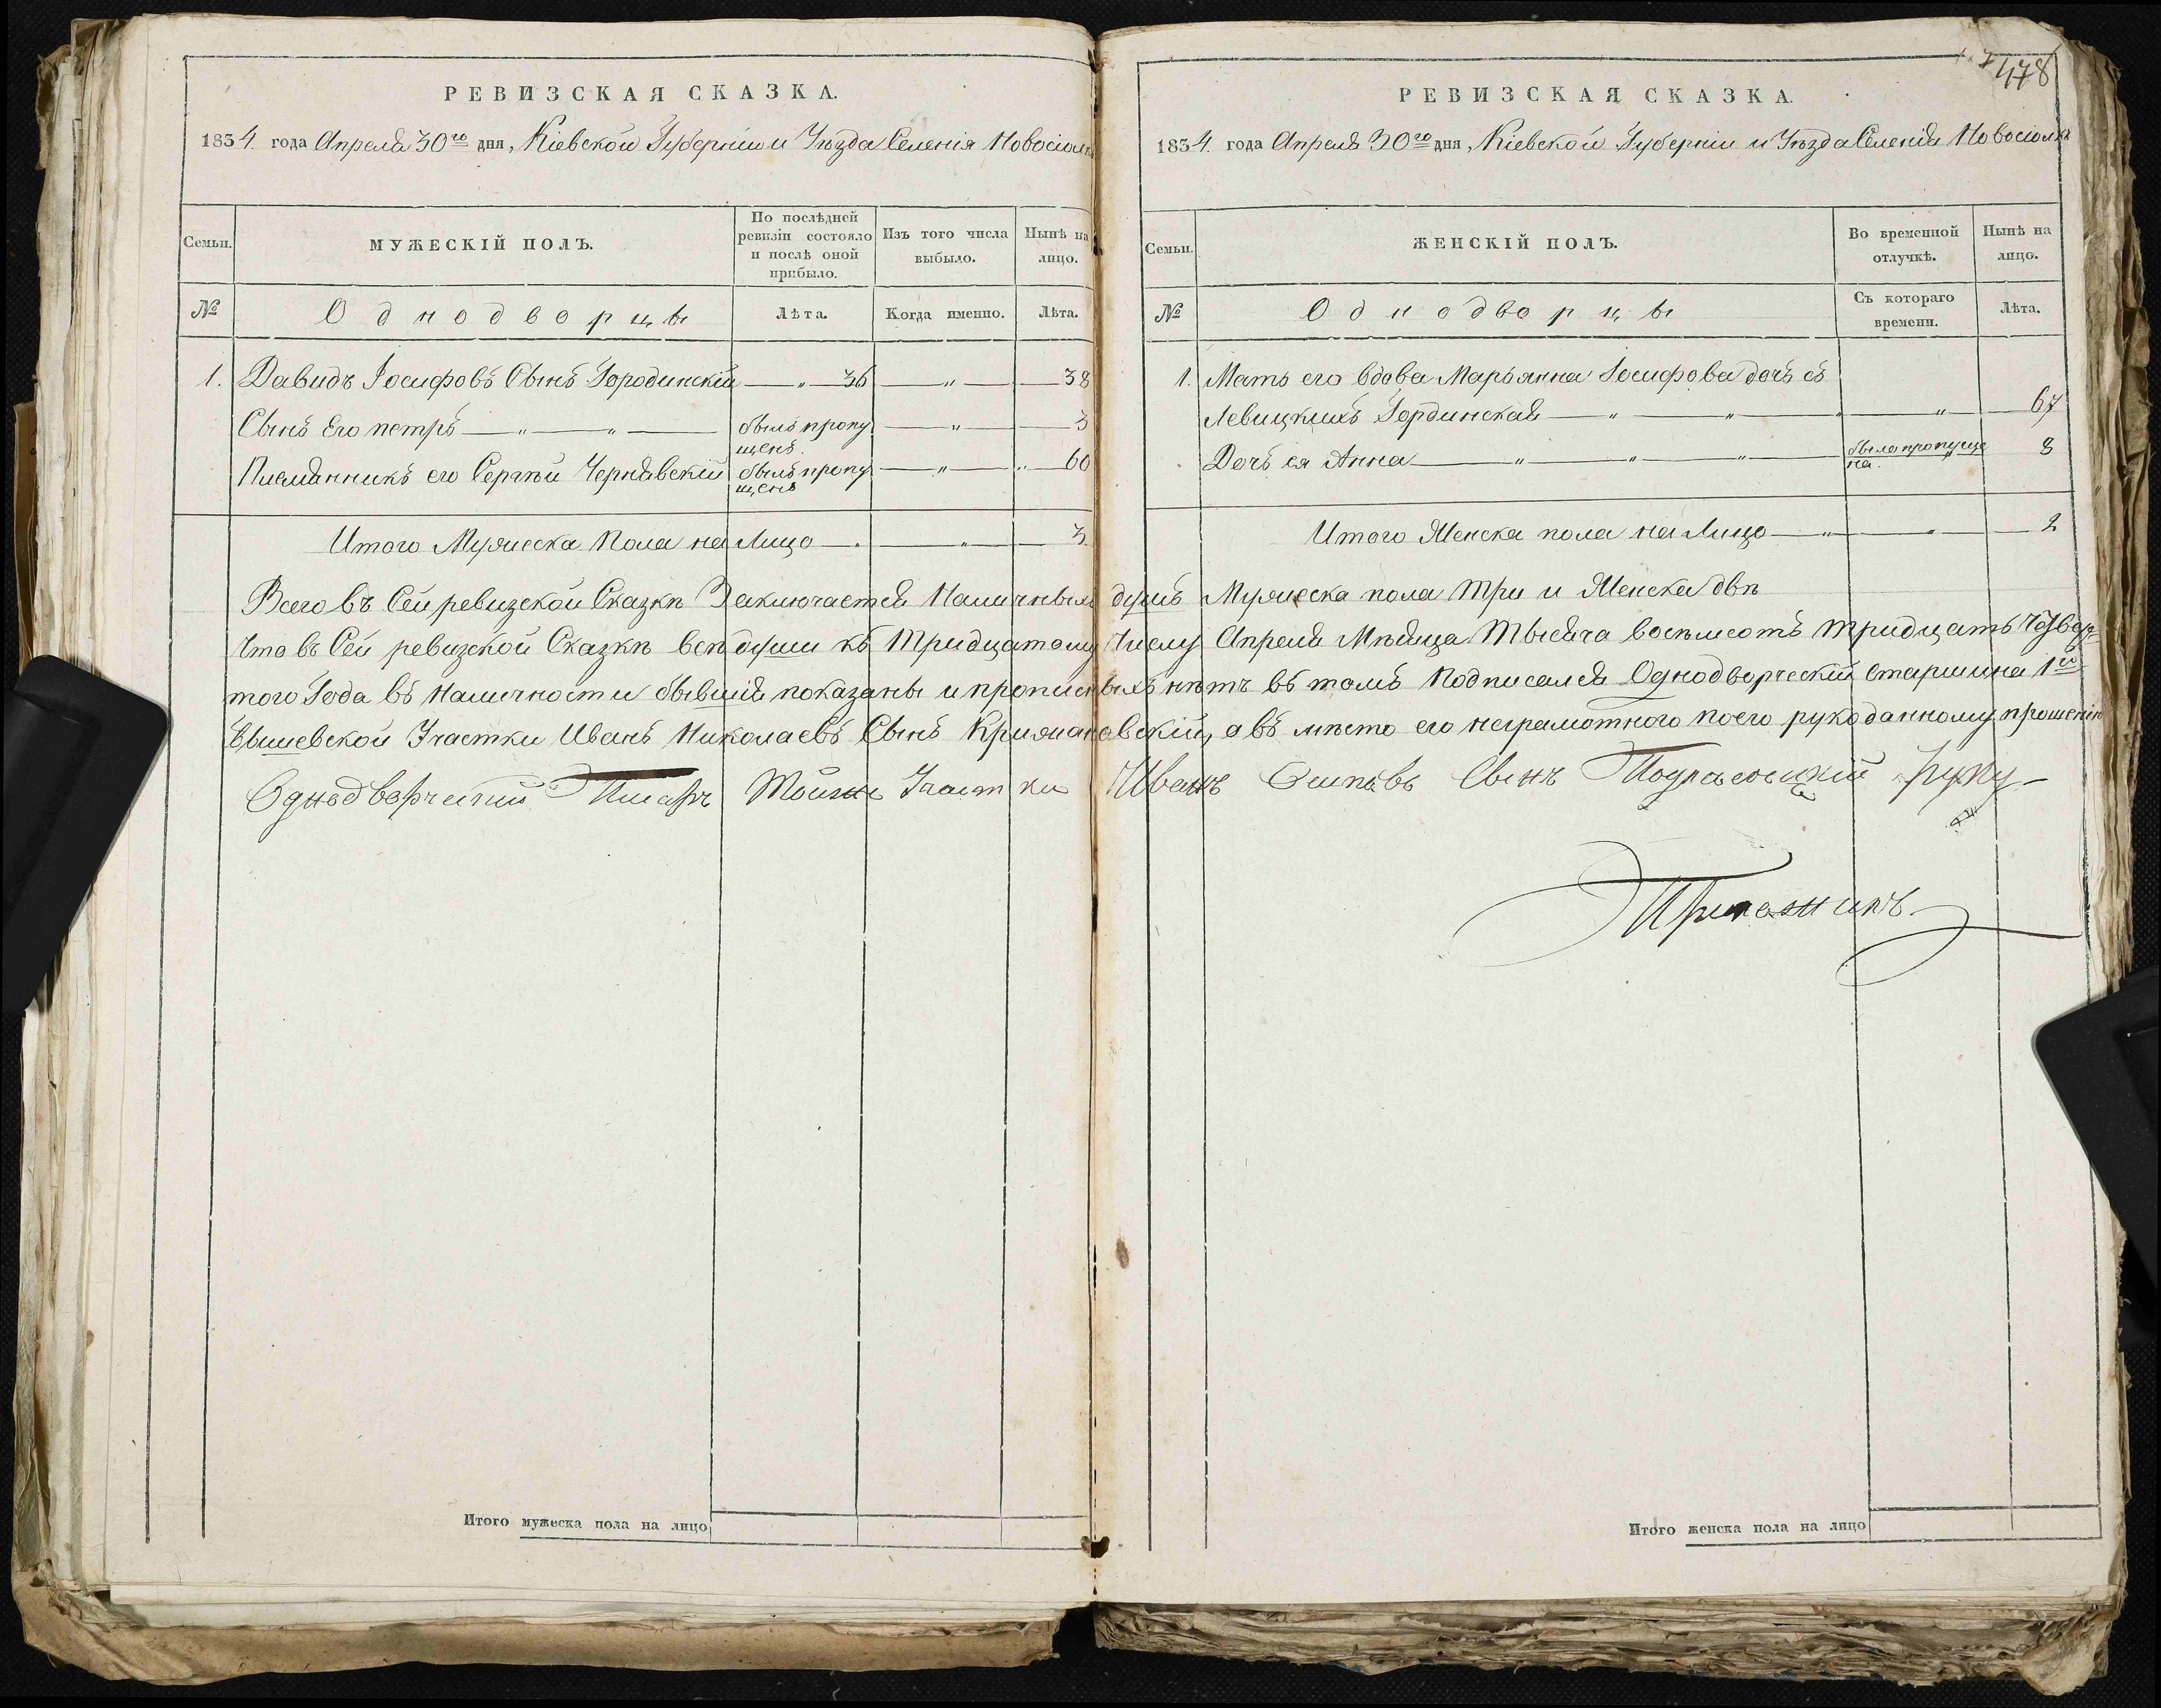 РЕВИЗСКАЯ СКАЗКА.
1834. года Апреля 30го дня, Кіевской Губерніи и Уѣзда Селенія Новосіолк
Семьи.
МУЖЕСКІЙ ПОЛЪ.
По послѣдней ревизіи состояло и послѣ оной прибыло.
Изъ того числа выбыло.
Нынѣ на лицо.
№
Однодворцы
Лѣта.
Когда именно.
Лѣта.
1. Давидъ Іосифовъ Сынъ Городинскій — " — 36 — " — 38
Сынъ Его петръ — " — " — былъ пропу — " — 3
щенъ.
Племянникъ его Сергѣй Чернявскій былъ пропу — " — " — 60
щенъ
Итого Мужеска Пола на Лицо — " — " — 3.
РЕВИЗСКАЯ СКАЗКА.
478
1834. года Апреля 30го дня, Кіевской Губерніи и Уѣзда Селенія Новосіолк
Семьи.
ЖЕНСКІЙ ПОЛЪ.
Во временной отлучкѣ.
Нынѣ на лицо.
№
Однодворцы
Съ котораго времени.
Лѣта.
1. Мать его вдова Марьянна Іосифова дочь съ
Левицкихъ Гординская — " — " — " — " — 67
Дочь ея Анна — " — " — " — была пропуще 8
на.
Итого Женска пола на Лицо — " — " — 2
Всего въ Сей ревизской Сказкѣ Заключается Наличныхъ душъ Мужеска пола три и Женска двѣ
Что въ Сей ревизской Сказкѣ всѣ души къ Тридцатому Числу Апреля Мѣсяца Тысяча восемсотъ тридцать Чэтвер
того Года въ наличности бывшія показаны и прописныхъ нѣтъ въ томъ Подписался Однодворческій старшина 1го
Вышевской Участки Иванъ Николаевъ Сынъ Крижановскій, а въ мѣсто его неграмотного поего рукоданному прошенію
Однодворческій Писарь Тойже Участки Иванъ Осиповъ Сынъ руку
Приложилъ
Итого мужеска пола на лицо
Итого женска пола на лицо